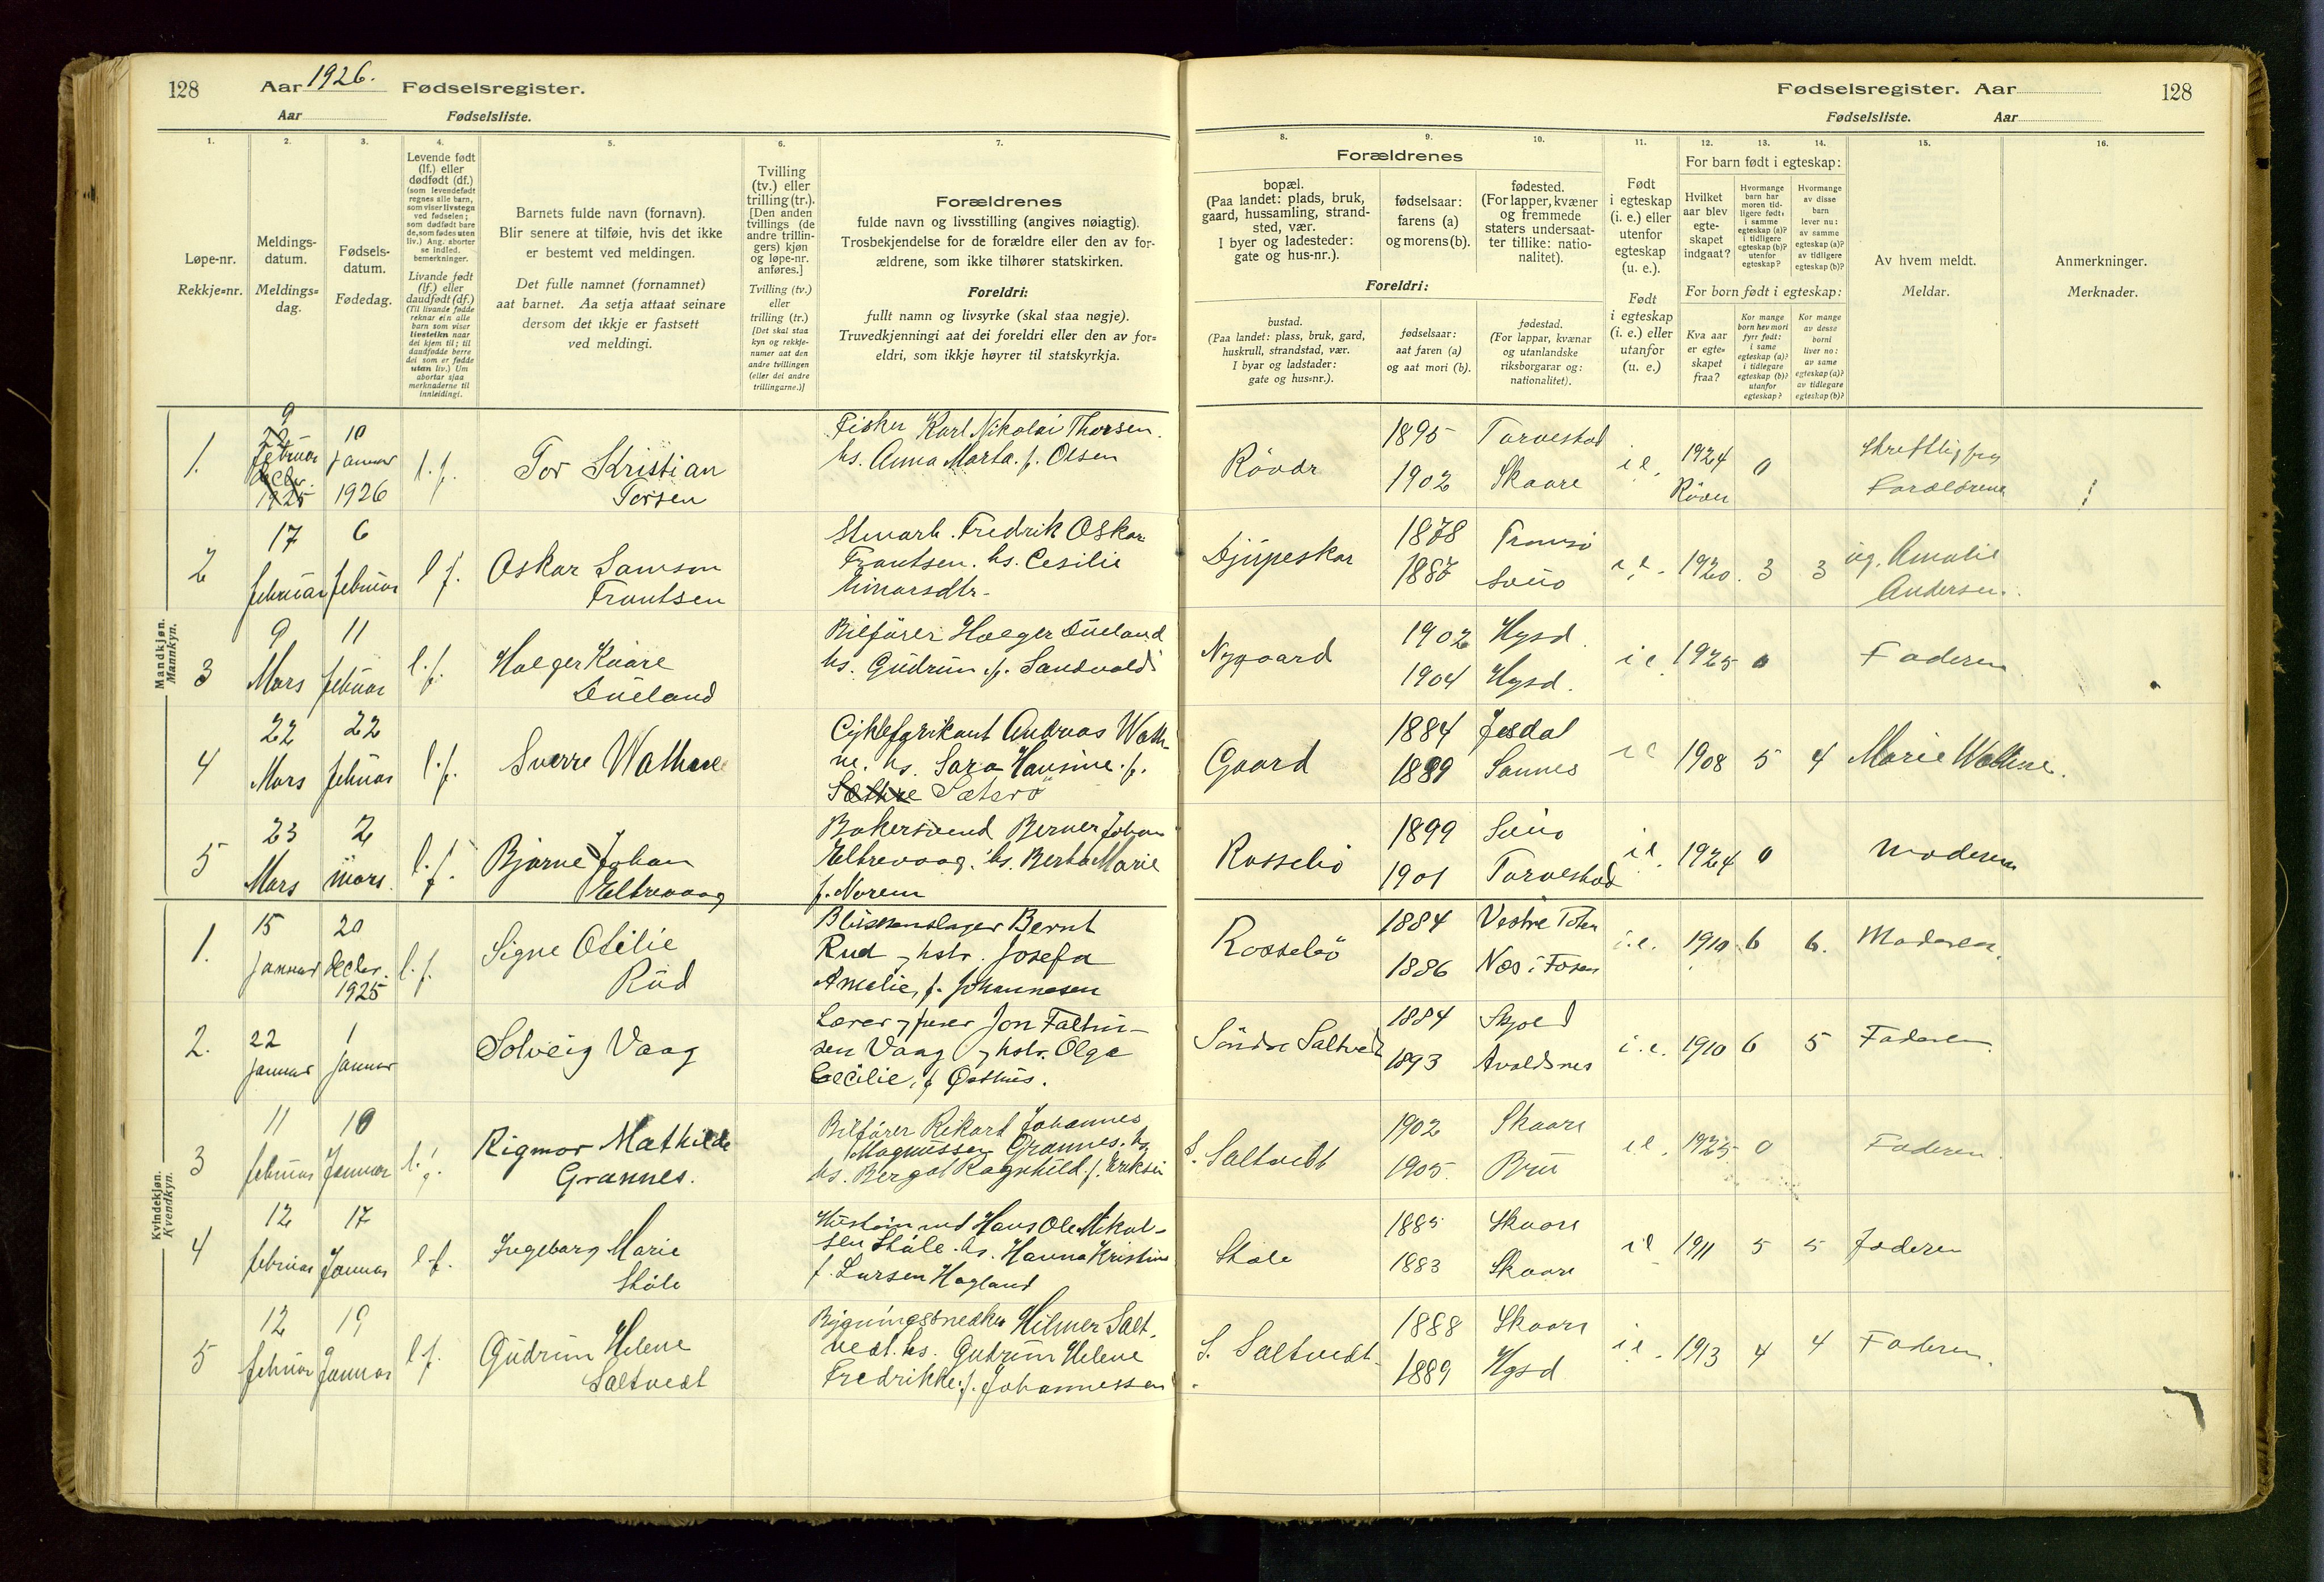 128
Aar 1926. Fødselsregister.
Aar Fødselsliste.
Fødselsregister. Aar
128
Fødselsliste. Aar
1. 2. 3. 4. 5. 6. 7. 8. 9. 10. 11. 12. 13. 14. 15. 16.
Løpe-nr.
Rekkje=nr.
Meldings-
datum.
Meldings=
dag.
Fødsels-
datum.
Fødedag.
Levende født
(lf.) eller
dødfødt (df.)
(som levendefødt
regnes alle barn,
som viser livstegn
ved fødselen;
som dødfødt bare
de, som fødes uten
liv.) Ang. aborter
se indled.
bemerkninger.
Livande født
(lf.) eller
daudfødt (df.)
(Til livande fødde
reknar ein alle
born som viser
livsteikn naar
dei kjem til; til
daudfødde berre
dei som er fødde
utan liv.) Um
abortar sjaa
merknaderne til
innleidingi.
Barnets fulde navn (fornavn).
Blir senere at tilføie, hvis det ikke
er bestemt ved meldingen.
Det fulle namnet (fornamnet)
aat barnet. Aa setja attaat seinare
dersom det ikkje er fastsett
ved meldingi.
Tvilling
(tv.) eller
trilling (tr.).
[Den anden
tvillings (de
andre trillin-
gers) kjøn
og løpe-nr.
anføres.]
Tvilling (tv.)
eller
trilling (tr.)
[Det skal staa
kyn og rekkje-
numer aat den
andre tvillingen
(eller dei andre
trillingarne.)]
Forældrenes
fulde navn og livsstilling (angives nøiagtig).
Trosbekjendelse for de forældre eller den av for-
ældrene, som ikke tilhører statskirken.
Foreldri:
fullt namn og livsyrke (skal staa nøgje).
Truvedkjenningi aat dei foreldri eller den av for=
eldri, som ikkje høyrer til statskyrkja.
Forældrenes
bopæl.
(Paa landet: plads, bruk,
gaard, hussamling, strand-
sted, vær.
I byer og ladesteder:
gate og hus-nr.).
fødselsaar:
farens (a)
og morens (b).
fødested.
(For lapper, kvæner
og fremmede
staters undersaat-
ter tillike: natio-
nalitet).
Foreldri:
bustad.
(Paa landet: plass, bruk, gard,
huskrull, strandstad, vær.
I byar og ladstader:
gate og hus=nr.).
fødselsaar:
aat faren (a)
og aat mori (b).
fødestad.
(For lappar, kvænar
og utanlandske
riksborgarar og:
nationalitet).
Født
i egteskap
(i. e.) eller
utenfor
egteskap
(u. e.).
Født
i egteskap
(i. e.) eller
utanfor
(u. e.)
For barn født i egteskap:
Hvilket
aar blev
egte-
skapet
indgaat?
Hvormange
barn har
moren tid-
ligere født:
i samme
egteskap (a)?
i tidligere
egteskap (b)?
utenfor
egteskap?
Hvormange
av disse
barn
lever nu:
av samme
egteskap (a)?
av tidligere
egteskap (b)?
For born født i egteskap:
Kva aar
er egte-
skapet
fraa?
Kor mange
born hev mori
fyrr født:
i same
egteskap (a)?
i tidlegare
egteskap (b)?
utanfor
egteskap?
Kor mange
av desse
borni
liver no:
av same
egteskap (a)?
av tidlegare
egteskap (b)?
Av hvem meldt.
Meldar.
Anmerkninger.
Merknader.
Mandkjøn.
Mannkyn.
1. 9 22 Februar Decbr. 1925
10 Januar 1926
l.f.
Tor Kristian
Torsen
Fisker Karl Nikolai Thorsen.
hs. Anna Marta. f. Olsen
Rövær
1895 Torvestad
1902 Skaare
i e. 1924 0
Röver
Skriftlig fra
Forældrene
2 17 Februar 6 Februar l f.
Oskar Samson
Frantsen
Stuearb. Fredrik Oskar
Frantsen. hs. Cesilie
Einarsdtr.
Djupeskar
1878 Tromsö
1887 Sveio
i e. 1920. 3 3
ug. Amalie
Andersen.
3 9 Mars 11 Februar l.f.
Holger Kaare
Dueland
Bilförer Holger Dueland
hs. Gudrun f. Sandvold
Nygaard
1902 Hgsd.
1904 Hgsd.
i e 1925 0
Faderen
4 22 Mars 22 Februar l.f.
Sverre Wathne
Cyklefabrikant Andreas Wath-
ne. hs. Sara Hansine. f.
Sæthre Sæterö
Gaard
1884 Jesdal
1889 Sannes
i e 1908 5 4
Marie Wathne.
5 23 Mars 2 mars. l.f.
Bjarne Johan
Eltrevaag
Bakersvend Berner Johan
Eltrevaag. hs. Berta Marie
f. Norem
Rossebö
1899 Sveio
1901 Torvestad
i e. 1924 0
Moderen
Kvindekjøn.
Kvendkyn.
1. 15 Januar 20 Decbr. 1925 l.f.
Signe Otilie
Rud
Blikkenslager Bernt
Rud og hstr. Josefa
Amalie, f. Johannesen
Rossebö
1884 Vestre Toten
1886 Næs i Fosen
i.e. 1910 6 6.
Moderen.
2. 22 Januar 1 Januar
Solveig Vaag
Lærer og Jon Faltin-
sen Vaag og hstr. Olga
Cecilie, f Østhus.
Söndre Saltvedt
1884 Skjold
1893 Avaldsnes
i.e. 1910 6 5
Faderen.
3 11 Februar 10 Januar l.f.
Rigmor Mathilde
Grannes.
Bilförer Rikart Johannes
Magnussen Grannes. hs
hs. Bergot Ragnhild. f. Eriksen
S. Saltvedt
1902 Skaare
1905. Bru
i e. 1925 0
Faderen.
4 12 Februar 17 Januar l f.
Ingeborg Marie
Skåle
Hans Ole Mikal-
sen Skåle. hs. Hanna Kristine
f. Larsen Hagland
Skåle
1885 Skaare
1883 Skaare
i e 1911 5 5
Faderen
5 12 Februar 19 Januar l f.
Gudrun Helene
Saltvedt
Bygningssnedker Hilmer Salt-
vedt. hs. Gudrun Helene
Fredrikke. f. Johannessen
S. Saltvedt.
1888 Skaare
1889 Hgsd
i e. 1913 4 4
Faderen.